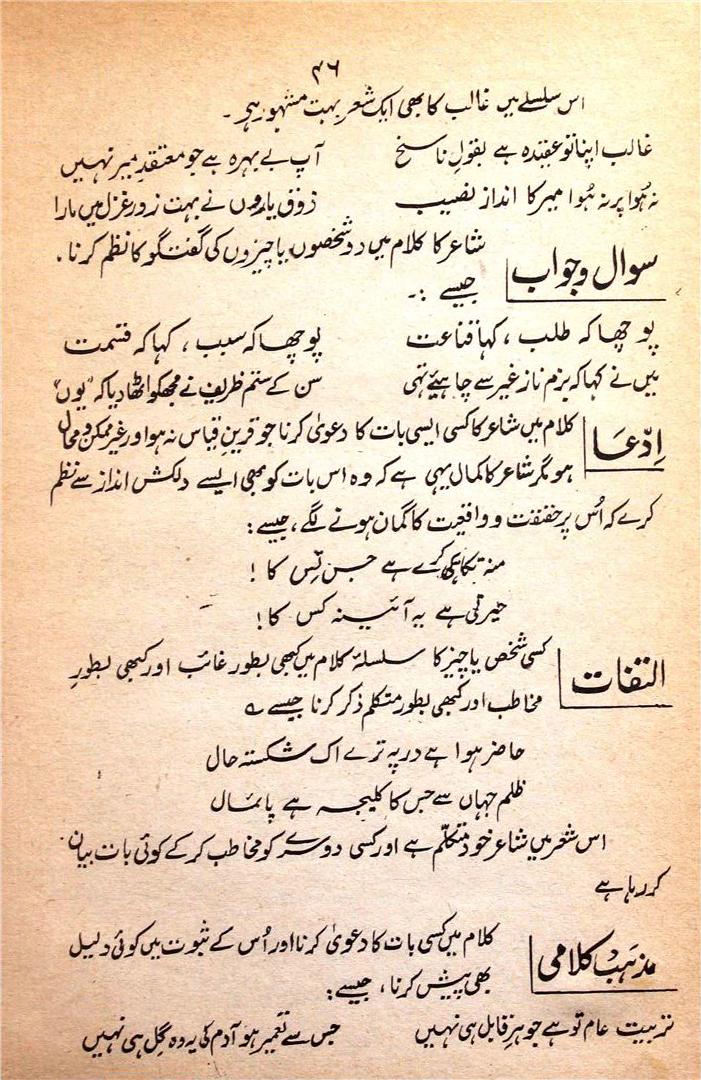 ۴۶
اس سلسلے میں غالب کا بھی ایک شعر بہت مشہور ہے ۔
غالب اپنا تو عقیدہ ہے بقولِ ناسخ آپ بے بہرہ ہے جو معتقدِ میر نہیں
نہ ہُوا پر نہ ہُوا میر کا انداز نصیب ذوق یاروں نے بہت زور غزل میں مارا
سوال و جواب شاعر کا کلام میں دو شخصوں یا چیزوں کی گفتگو کا نظم کرنا ۔
جیسے :۔
پوچھا کہ طلب ، کہا قناعت پوچھا کہ سبب ، کہا کہ قسمت
میں نے کہا کہ بزم ناز غیر سے چاہیئے تہی سن کے ستم ظریف نے مجھکو اٹھا دیا کہ "یوں"
اِدّعَا کلام میں شاعر کا کسی ایسی بات کا دعویٰ کرنا جو قرینِ قیاس نہ ہو اور غیر ممکن و محال
ہو مگر شاعر کا کمال یہی ہے کہ وہ اس بات کو بھی ایسے دلکش انداز سے نظم
کرے کہ اُس پر حقیقت و واقعیت کا گمان ہونے لگے ، جیسے :
منہ تکا ہی کرے ہے جس تِس کا !
حیرتی ہے یہ آئینہ کس کا !
التفات کسی شخص یا چیز کا سلسلۂ کلام میں کبھی بطور غائب اور کبھی بطورِ
مخاطب اور کبھی بطور متکلم ذکر کرنا جیسے ؎
حاضر ہوا ہے در پہ ترے اک شکستہ حال
ظلم جہاں سے جس کا کلیجہ ہے پائمال
اس شعر میں شاعر خود متکلّم ہے اور کسی دوسرے کو مخاطب کر کے کوئی بات بیان
کر رہا ہے
مذہب کلامی کلام میں کسی بات کا دعویٰ کرنا اور اُس کے ثبوت میں کوئی دلیل
بھی پیش کرنا ، جیسے :
تربیت عام تو ہے جوہرِ قابل ہی نہیں جس سے تعمیر ہو آدم کی یہ وہ گِل ہی نہیں